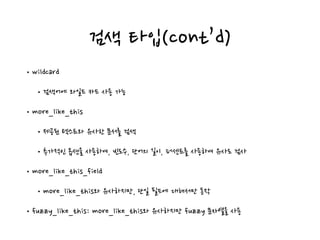 검색 타입(cont'd)
• wildcard
• 검색어에 와일드 카드 사용 가능
• more_like_this
• 제공된 텍스트와 유사한 문서를 검색
• 추가적인 옵션을 사용하여, 빈도수, 단어의 길이, 퍼센트를 사용하여 유사도 검사
• more_like_this_field
• more_like_this와 유사하지만, 단일 필드에 대해서만 동작
• fuzzy_like_this: more_like_this와 유사하지만 fuzzy 문자열을 사용